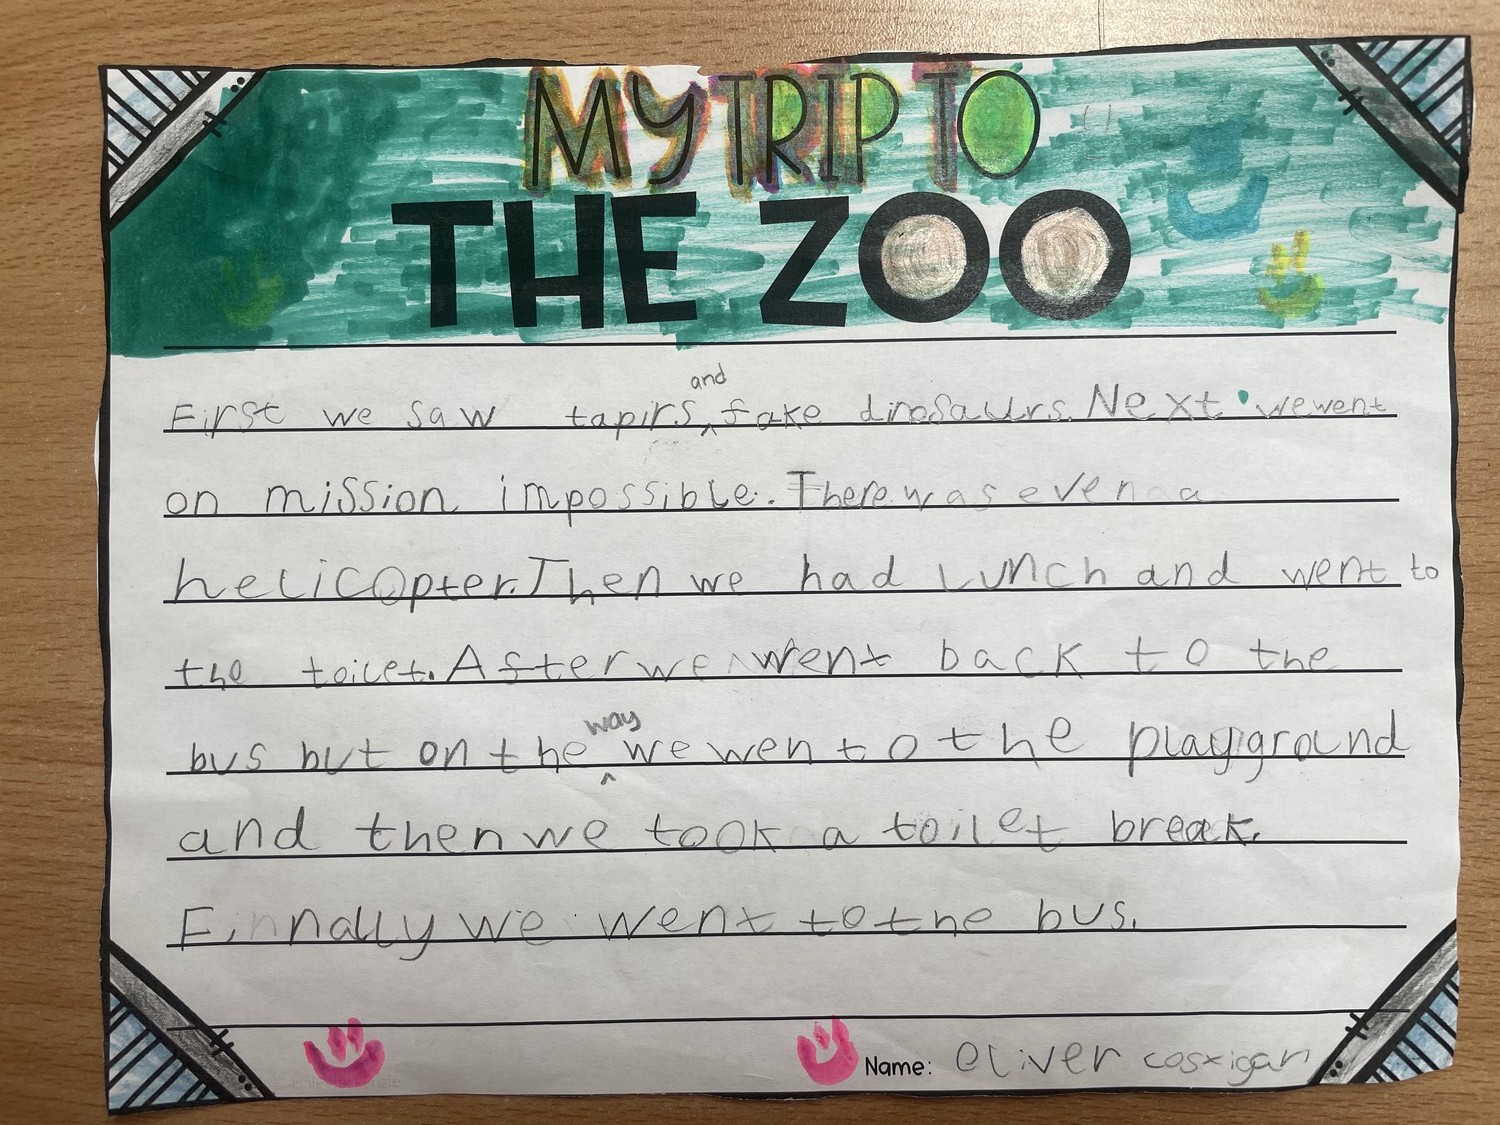 MY TRIP TO
THE ZOO
and
First we saw tapirs ^ fake dinosaurs. Next we went
on mission impossible. There was even a
helicopter. Then we had lunch and went to
the toilet. After we went back to the
way
bus but on the ^ we went to the playground
and then we took a toilet break.
Finnally we went to the bus.
Name: Oliver